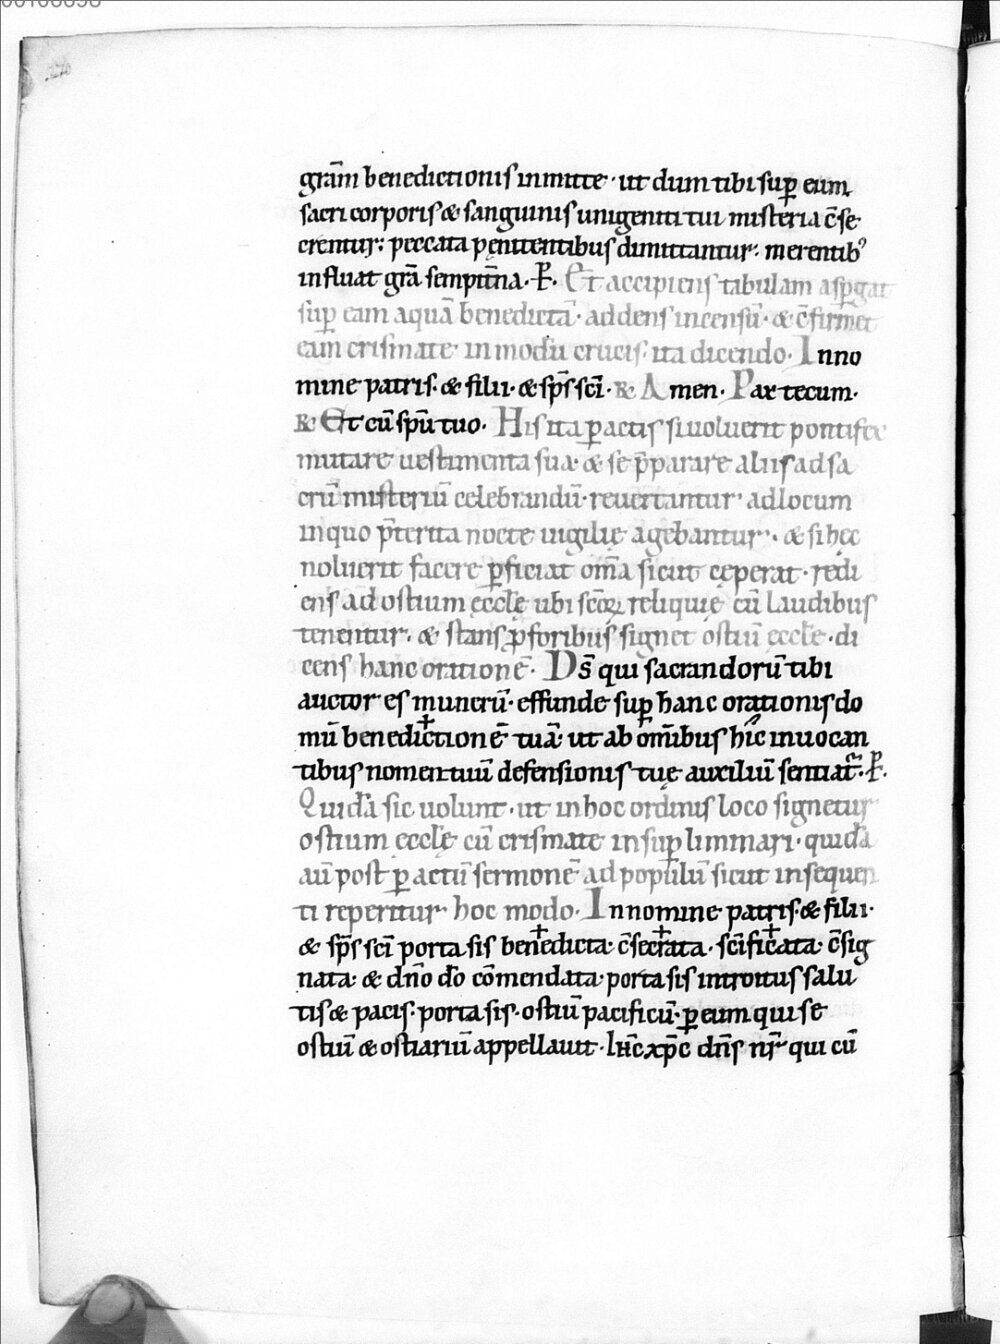 grām benedictionis inmitte · ut dum tibi suꝑ eam
sacri corporis & sanguinis unigeniti tui misteria c̄se
crentur: peccata pęnitentibus dimittantur: merentibꝰ
influat grā sempit̄na. P̄. Et accipiens tabulam asꝑgat
suꝑ eam aquā benedictā · addens incensū · & c̄firmet
eam crismate in modū crucis · ita dicendo. Inno
mine patris · & filii · & sp̄s sc̄i. ℞ Amen. Pax tecum.
℞ Et cū sp̄u tuo. His ita ꝑactis si uoluerit pontifex
mutare uestimenta sua · & se p̄parare aliis ad sa
crū misteriū celebrandū · reuertantur ad locum
in quo p̄terita nocte uigilię agebantur · & si hęc
noluerit facere ꝑficiat om̄a sicut cęperat · redi
ens ad ostium ęccl̄ę ubi sc̄oꝝ reliquię cū laudibus
tenentur · & stans p̄ foribus signet ostiū ęccl̄e · di
cens hanc orationē. Ds̄ qui sacrandorū tibi
auctor es munerū · effunde suꝑ hanc orationis do
mū bene✝dictionē tuā · ut ab om̄ibus hic inuocan
tibus nomen tuū defensionis tuę auxiliū sentiat᷑. P̄.
Quidā sic uolunt · ut in hoc ordinis loco signetur
ostium ęccl̄ę cū crismate in suꝑ liminari · quidā
aū post ꝑactū sermonē ad populū sicut in sequen
ti reperitur hoc modo. In nomine patris · & filii ·
& sp̄s sc̄i porta sis bene✝dicta · c̄se✝crata · sc̄ifi✝cata · c̄sig
nata · & dn̄o dō cōmendata · porta sis introitus salu
tis & pacis · porta sis · ostiū pacificū · ꝑ eum qui se
ostiū & ostiariū appellauit · ih̄c xp̄c dn̄s nr̄ qui cū